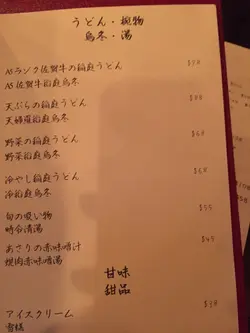 うどん・椀物
烏冬・湯
A5ランク佐賀牛の稲庭うどん
A5佐賀牛稲庭烏冬
天ぷらの稲庭うどん
天婦羅稲庭烏冬
野菜の稲庭うどん
野菜稲庭烏冬
冷やし稲庭うどん
冷稲庭烏冬
旬の吸い物
時令清湯
あさりの赤味噌汁
蜆肉赤味噌湯
甘味
甜品
アイスクリーム
雪糕